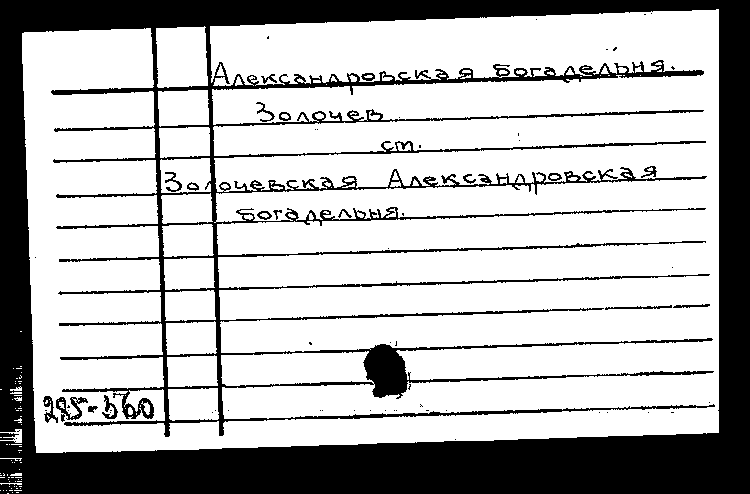 Александровская богадельня.
Золочев
ст.
Золочевская Александровская
богадельня.
285-560